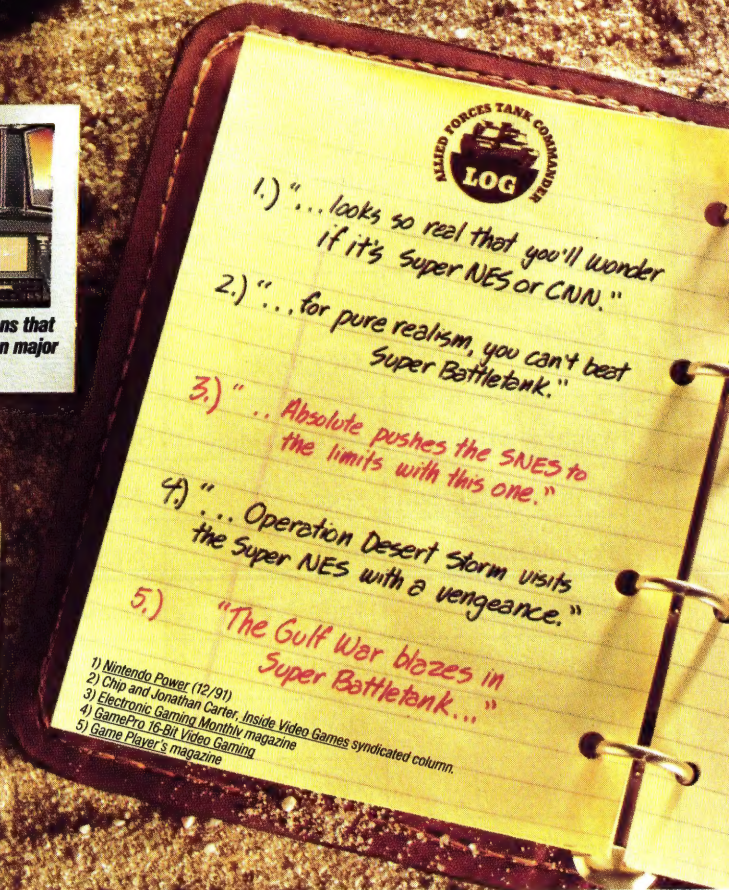 ALLIED FORCES TANK COMMANDER
LOG
1.) "...looks so real that you'll wonder
if it's Super NES or CNN."
2.) "...for pure realism, you can't beat
Super Battletank."
3.) ".. Absolute pushes the SNES to
the limits with this one."
4.) "... Operation Desert Storm visits
the Super NES with a vengeance."
5.) "The Gulf War blazes in
Super Battletank..."
1) Nintendo Power (12/91)
2) Chip and Jonathan Carter, Inside Video Games syndicated column.
3) Electronic Gaming Monthly magazine
4) GamePro 16-Bit Video Gaming
5) Game Player's magazine
ns that
n major